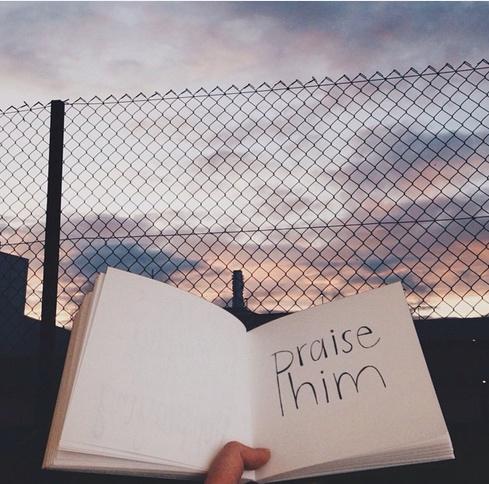 praise
him